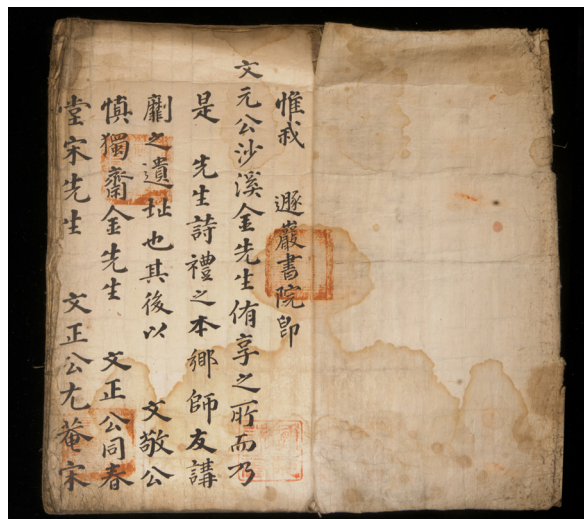 惟我　遯巖書院卽
文元公沙溪金先生侑享之所而乃
是　先生詩禮之本鄉師友講
劘之遺址也其後以　文敬公
愼獨齋金先生　文正公同春
堂宋先生　文正公尤菴宋